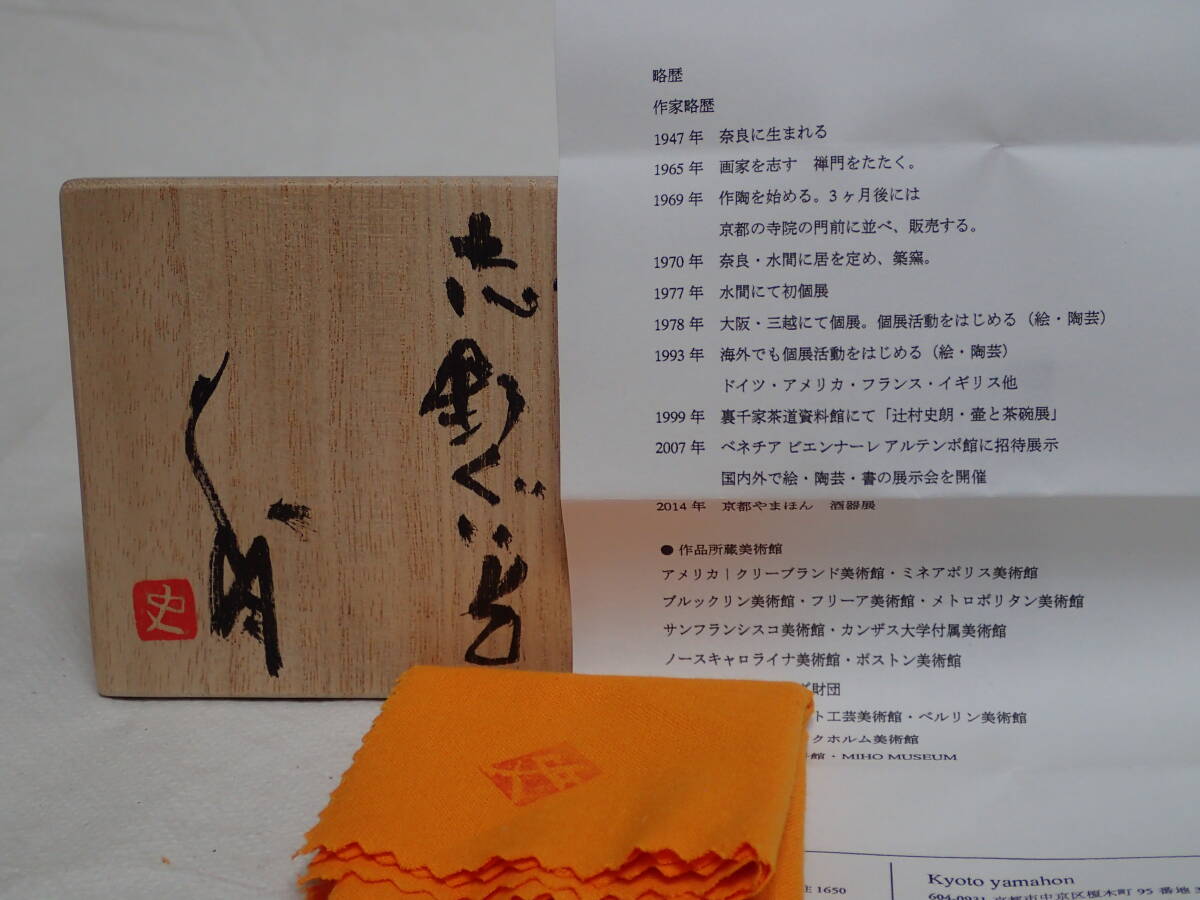 志野ぐい呑
史朗
史
略歴
作家略歴
1947年 奈良に生まれる
1965年 画家を志す 禅門をたたく。
1969年 作陶を始める。3ヶ月後には
京都の寺院の門前に並べ、販売する。
1970年 奈良・水間に居を定め、築窯。
1977年 水間にて初個展
1978年 大阪・三越にて個展。個展活動をはじめる（絵・陶芸）
1993年 海外でも個展活動をはじめる（絵・陶芸）
ドイツ・アメリカ・フランス・イギリス他
1999年 裏千家茶道資料館にて「辻村史朗・壷と茶碗展」
2007年 ベネチア ビエンナーレ アルテンポ館に招待展示
国内外で絵・陶芸・書の展示会を開催
2014年 京都やまほん 酒器展
● 作品所蔵美術館
アメリカ | クリーブランド美術館・ミネアポリス美術館
ブルックリン美術館・フリーア美術館・メトロポリタン美術館
サンフランシスコ美術館・カンザス大学付属美術館
ノースキャロライナ美術館・ボストン美術館
財団
ト工芸美術館・ベルリン美術館
クホルム美術館
館・MIHO MUSEUM
1650
Kyoto yamahon
604-0931 京都市中京区榎木町 95 番地